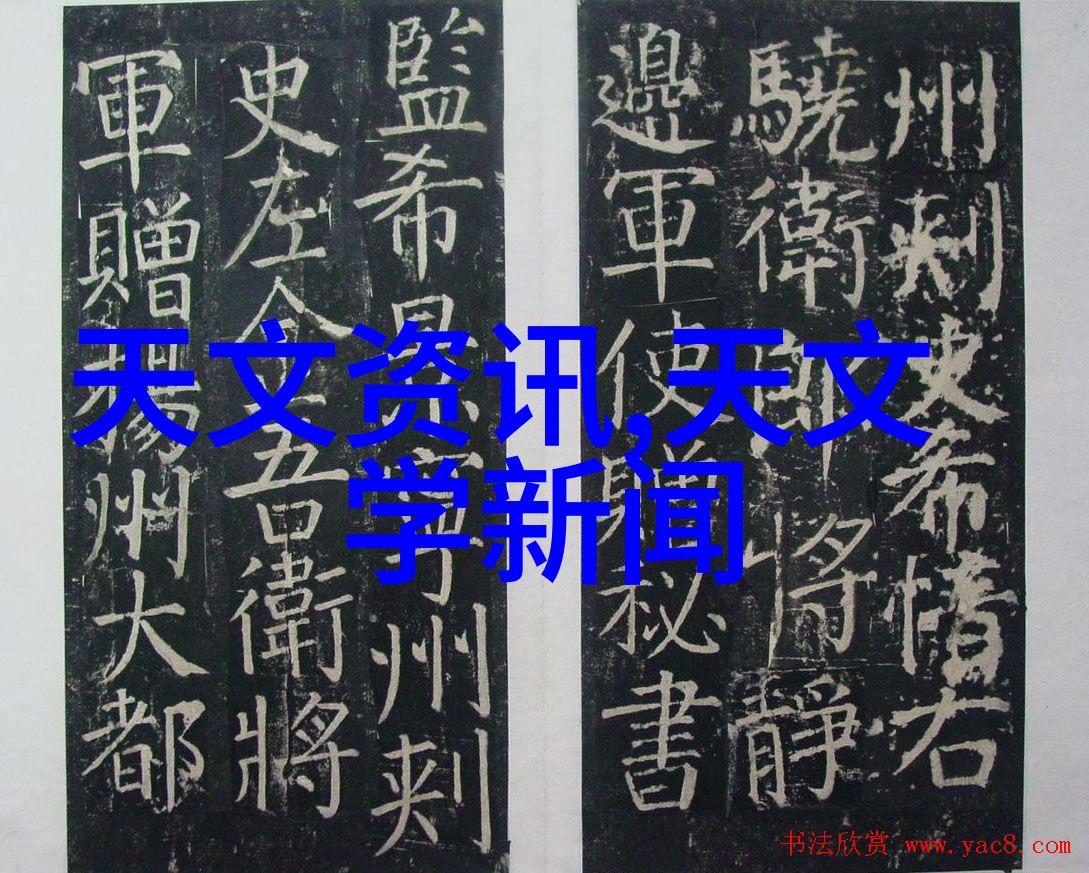 天文资讯,天文
学新闻
州刺史希右
驍衛郎將靜
邊軍使贈秘書
監希景寧州刺
史左金吾衛將
軍贈揚州大都
书法欣赏 www.yac8.com